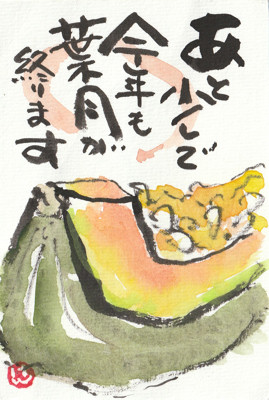 あと
少しで
今年も
葉月が
終ります